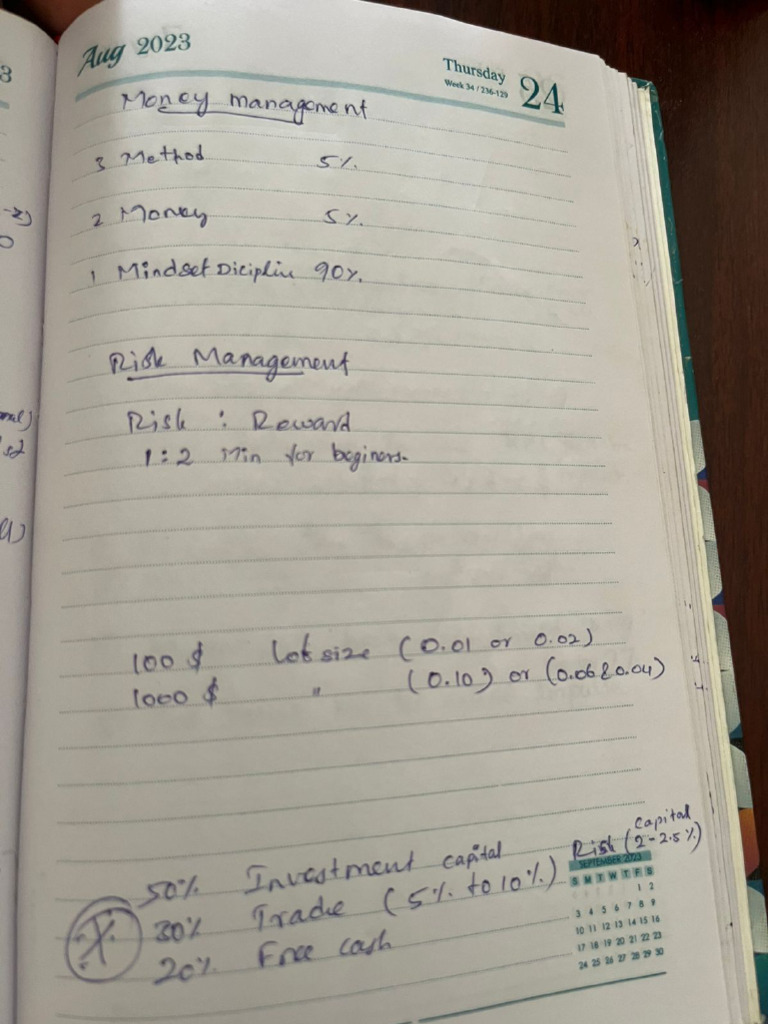 3
Aug 2023
Thursday
Week 34 / 236-129
24
Money management
3 Method 5%.
2 Money 5%.
1 Mindset Dicipline 90%.
Risk Management
Risk : Reward
1:2 Min for beginers.
100 $ Lot size (0.01 or 0.02)
1000 $ " (0.10) or (0.06 & 0.04)
50% Investment capital
30% Trade (5% to 10%)
20% Free cash
Risk capital (2-2.5%)
SEPTEMBER 2023
S M T W T F S
1 2
3 4 5 6 7 8 9
10 11 12 13 14 15 16
17 18 19 20 21 22 23
24 25 26 27 28 29 30